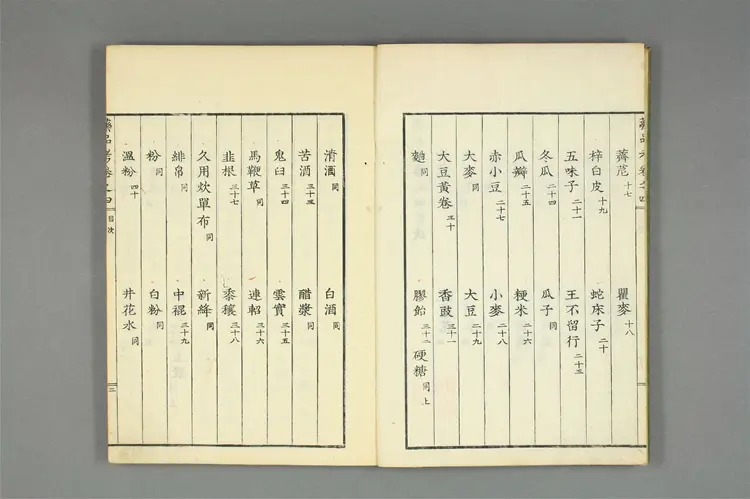 薺苨 十七 瞿麥 十八
梓白皮 十九 蛇床子 二十
五味子 二十一 王不留行 二十三
冬瓜 二十四 瓜子 同
瓜瓣 二十五 粳米 二十六
赤小豆 二十七 小麥 二十八
大麥 同 大豆 二十九
大豆黃卷 三十 香豉 三十一
麯 同 膠飴 三十二 硬糖 同上
清酒 同 白酒 同
苦酒 三十三 醋漿 同
鬼臼 三十四 雲實 三十五
馬鞭草 同 連軺 三十六
韭根 三十七 黍穰 三十八
久用炊單布 同 新絳 同
緋帛 同 中裩 三十九
粉 同 白粉 同
溫粉 四十 井花水 同
藥品考卷之四 目次 二